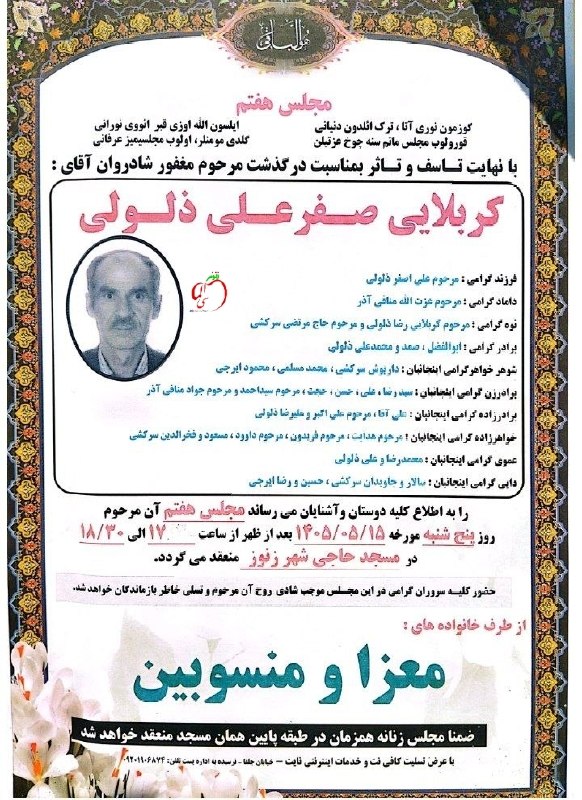 هوالباقی
مجلس هفتم
کوزمون نوری آتا ، ترک ائلدون دنیانی
ایلسون الله اوزی قبر انووی نورانی
قورولوب مجلس ماتم سنه چوخ عزتیلن
گلدی مومنلر، اولوب مجلسیمیز عرفانی
با نهایت تاسف و تاثر بمناسبت درگذشت مرحوم مغفور شادروان آقای :
کربلایی صفرعلی ذلولی
فرزند گرامی : مرحوم علی اصغر ذلولی
داماد گرامی : مرحوم عزت الله منافی آذر
نوه گرامی : مرحوم کربلایی رضا ذلولی و مرحوم حاج مرتضی سرکشی
برادر گرامی : ابوالفضل ، صمد و محمدعلی ذلولی
شوهر خواهرگرامی اینجانبان : داریوش سرکشی ، محمد مسلمی ، محمود ایرجی
برادرزن گرامی اینجانبان : سیدرضا ، علی ، حسن ، حجت ، مرحوم سیداحمد و مرحوم جواد منافی آذر
برادرزاده گرامی اینجانبان : علی آقا ، مرحوم علی اکبر و علیرضا ذلولی
خواهرزاده گرامی اینجانبان : مرحوم هدایت ، مرحوم فریدون ، مرحوم داوود ، مسعود و فخرالدین سرکشی
عموی گرامی اینجانبان : محمدرضا و علی ذلولی
دایی گرامی اینجانبان : سالار و جاویدان سرکشی ، حسین و رضا ایرجی
را به اطلاع کلیه دوستان وآشنایان می رساند مجلس هفتم آن مرحوم
روز پنج شنبه مورخه ۱۴۰۵/۰۵/۱۵ بعد از ظهر از ساعت ۱۷ الی ۱۸/۳۰
در مسجد حاجی شهر زنوز منعقد می گردد.
حضور کلیه سروران گرامی در این مجلس موجب شادی روح آن مرحوم و تسلی خاطر بازماندگان خواهدشد.
از طرف خانواده های :
معزا و منسوبین
ضمنا مجلس زنانه همزمان در طبقه پایین همان مسجد منعقد خواهد شد
با عرض تسلیت کافی نت و خدمات اینترنتی ثابت - خیابان جلفا - نرسیده به اداره پست تلفن: ۰۹۲۰۱۱۰۶۸۷۴